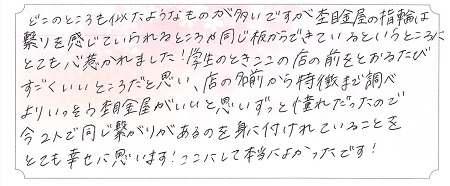 どこのところも似たようなものが多いですが杢目金屋の指輪は
繋りを感じていられるところが同じ板からできているというところに
とても心惹かれました!学生のときここの店の前をとおるたび
すごくいいところだと思い、店の名前から特徴まで調べ
よりいっそう杢目金屋がいいと思いずっと憧れだったので
今2人で同じ繋がりがあるのを身に付けれていることを
とても幸せに思います!ここにして本当によかったです!